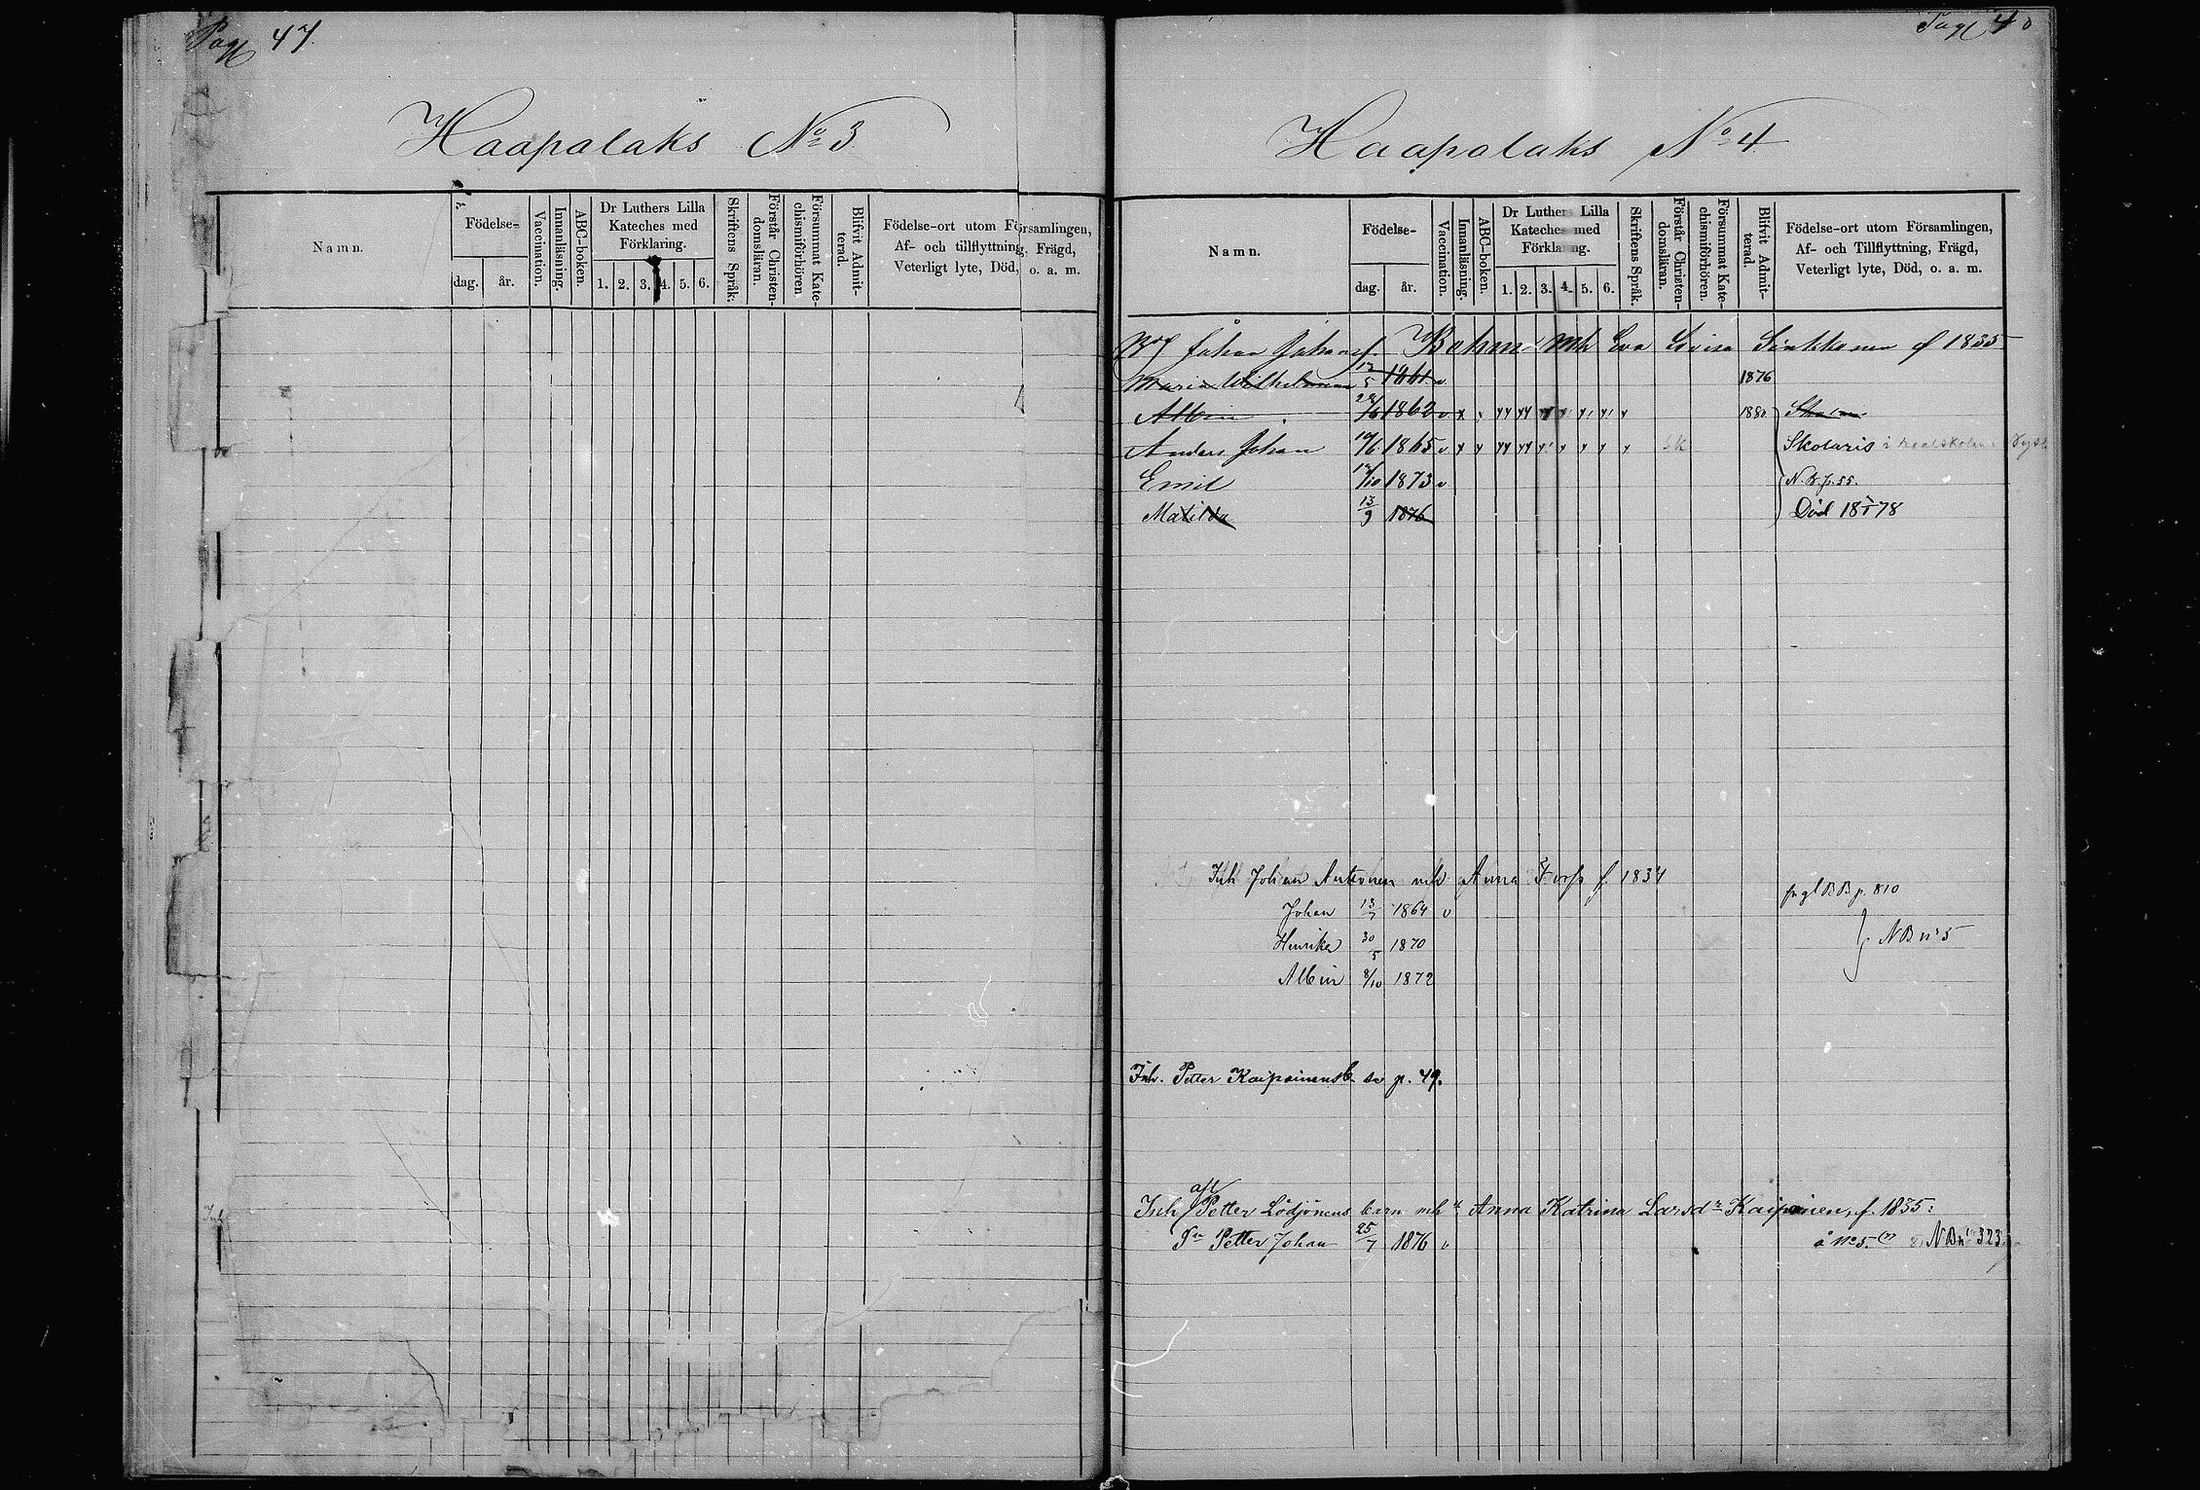 Pag 47.
Haapalaks No 3
Namn.
Födelse-
dag.
år.
Vaccination.
Innanläsning.
ABC-boken.
Dr Luthers Lilla
Kateches med
Förklaring.
1. 2. 3. 4. 5. 6.
Skriftens Språk.
Förstår Christen-
domsläran.
Försummat Kate-
chismiförhören
Blifvit Admit-
terad.
Födelse-ort utom Församlingen,
Af- och tillflyttning, Frägd,
Veterligt lyte, Död, o. a. m.
Inh
Pag 4
Haapalaks No 4
Namn.
Födelse-
dag.
år.
Vaccination.
Innanläsning.
ABC-boken.
Dr Luthers Lilla
Kateches med
Förklaring.
1. 2. 3. 4. 5. 6.
Skriftens Språk.
Förstår Christen-
domsläran.
Försummat Kate-
chismiförhören.
Blifvit Admit-
terad.
Födelse-ort utom Församlingen,
Af- och Tillflyttning, Frägd,
Veterligt lyte, Död, o. a. m.
Johan Johans Bohm mh Eva Lovisa Sinkkonen f 1835
Maria Wilhelmina 12/5 1861 v 1876
Albin 22/6 1862 v 1880
Anders Johan 19/6 1865 v Skolaris i realskolan i
Emil 12/10 1873 v N.B. p. 55.
Matilda 13/9 1876 Död 18 78
Inh Johan Anttonen mh Anna f. 1834 fr gl BB p. 810
Johan 13/7 1864 v
Henrika 30/5 1870 NB no 5
Albin 8/10 1872
Inh. Petter Kaipainens b. se p. 49.
Inh afl Petter Lödjönens barn mh Anna Katrina Larsdr Kaipainen, f. 1835:
Sn Petter Johan 25/7 1876 v å No 5. NB 323